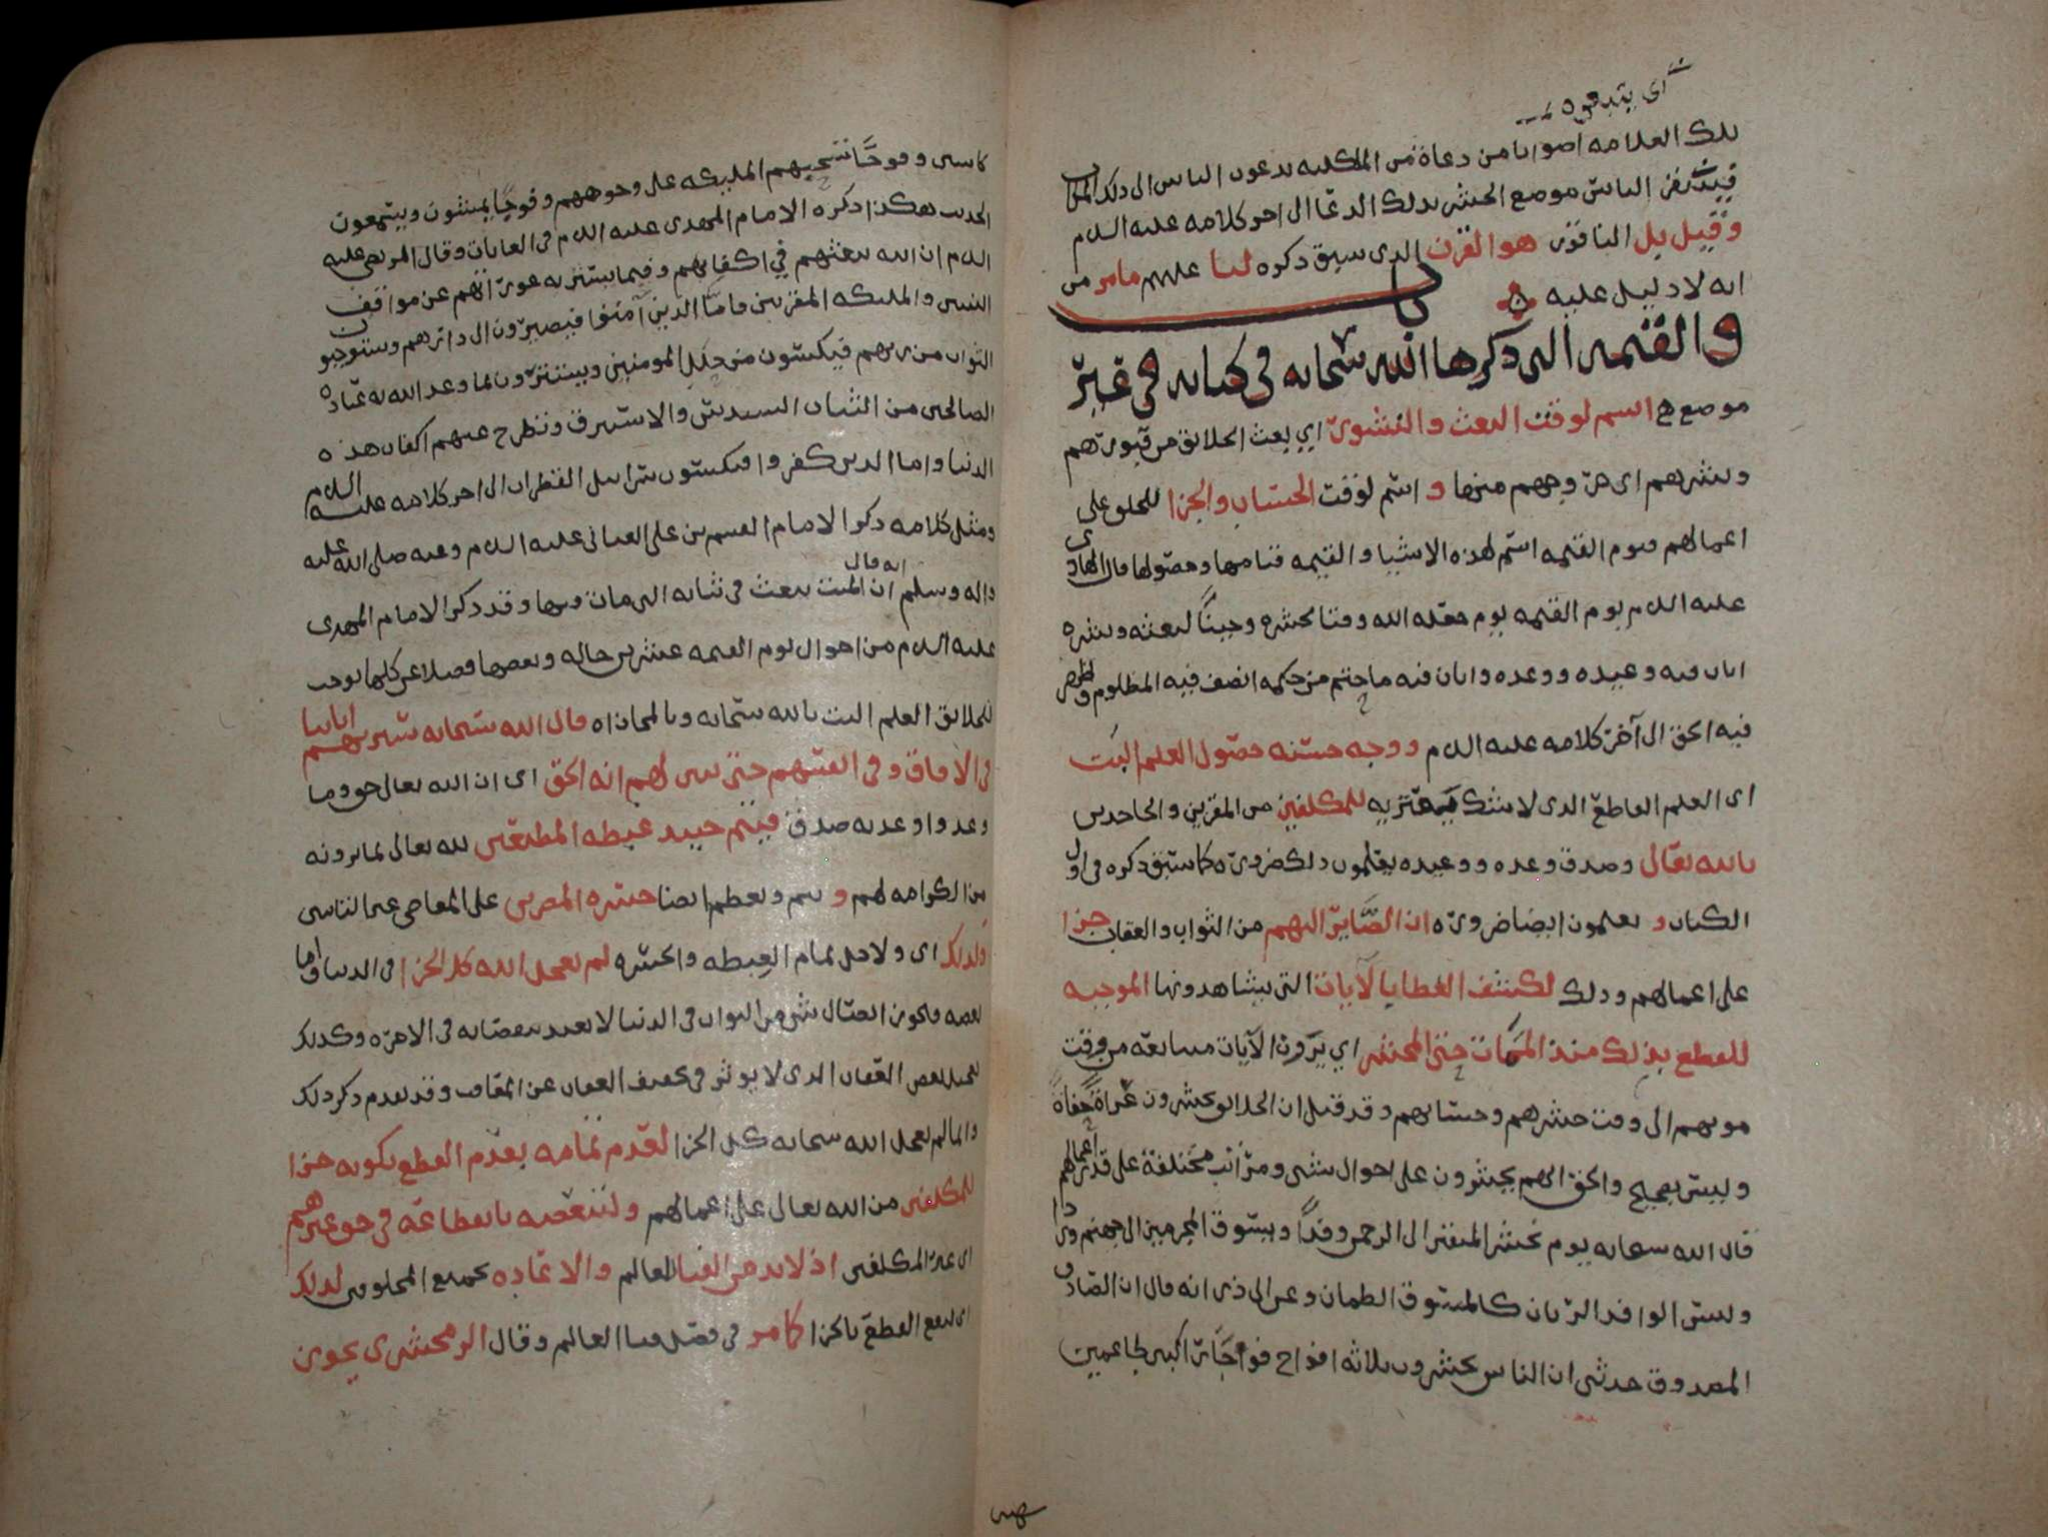 أي يبتدئه
تلك العلامه اصواتا من دعاة من الملكيه يدعون الناس الى ذلك المقاب
فيستنفر الناس موضع الحشر بذلك الدعا الى اخر كلامه عليه السلم
وقيل بل الناقور هو القرن الذي سبق ذكره لنا عليهم مامر من
انه لا دليل عليه
والقيمه التي ذكرها الله سبحانه في كتابه في غير
موضع هي اسم لوقت البعث والنشور اي بعث الخلايق من قبورهم
ونشرهم اي خروجهم منها و اسم لوقت الحساب والجزا للخلق على
اعمالهم فيوم القيمه اسم لهذه الاشيا والقيمه قيامها وحصولها قال الهادي
عليه السلم يوم القيمه يوم جعله الله وقتا لحشره وحينا لبعثه ونشره
ابان فيه وعيده ووعده وابان فيه ما حتم من حكمه انصف فيه المظلوم وظهر
فيه الحق الى آخر كلامه عليه السلم ووجه حسنه حصول العلم البت
اي العلم القاطع الذي لا شك يعتريه للمكلفين من المقرين والجاحدين
بالله تعالى وصدق وعده ووعيده يعلمون ذلك ضروره كما سبق ذكره في اول
الكتاب و يعلمون ايضا ضروره ان الصاير اليهم من الثواب والعقاب جزا
على اعمالهم وذلك لكشف الغطا يالآيات التي يشاهدونها الموجبه
للقطع بذلك منذ الممات حتى المحشر اي يرون الآيات متتابعه من وقت
موتهم الى وقت حشرهم وحسابهم وقد قيل ان الخلايق يحشرون عراة حفاة
وليس بصحيح والحق انهم يحشرون على احوال شتى ومراتب مختلفة على قدر اعمالهم
قال الله سبحانه يوم نحشر المتقين الى الرحمن وفدا ونسوق المجرمين الى جهنم وردا
وليس الوافد الريان كالمسوق الظمان وعن ابي ذر انه قال ان الصادق
المصدوق حدثني ان الناس يحشرون ثلاثه افواج فوجا راكبين طاعمين
كاسين وفوجا تسحبهم المليكه على وجوههم وفوجا يمشون ويسعون
الحديث هكذا ذكره الامام المهدي عليه السلم في الغايات وقال المرتضى عليه
السلم ان الله يبعثهم في اكفانهم وفيما يستتر به عوراتهم عن مواقف
النبيين والمليكه المقربين فاما الذين آمنوا فيصيرون الى دارهم ويستوجبون
الثواب من ربهم فيكسون من حلل المومنين ويستترون بما وعد الله به عباده
الصالحين من الثياب السندس والاستبرق وتطرح عنهم اكفان هذه
الدنيا واما الذين كفروا فيكسون سرابيل القطران الى اخر كلامه عليه السلم
ومثل كلامه ذكر الامام القسم بن علي العياني عليه السلم وعنه صلى الله عليه
واله وسلم انه قال ان الميت يبعث في ثيابه التي مات فيها وقد ذكر الامام المهدي
عليه السلم من احوال يوم القيمه عشرين حاله وبعضها فضلا عن كلها يوجب
للخلايق العلم البت بالله سبحانه وبالمجازاه قال الله سبحانه سنريهم اياتنا
في الآفاق وفي انفسهم حتى يتبين لهم انه الحق اي ان الله تعالى حق وما
وعد واوعد به صدق فيتم حينيد غبطه المطيعين لله تعالى بما يرونه
من الكرامه لهم و يتم ويعظم ايضا حسره المصرين على المعاصي غير التايبين
ولذلك اي ولاجل تمام الغبطه والحسره لم يعجل الله كل الجزا في الدنيا واما
بعضه فيجوز ايصال شي من الثواب في الدنيا لا يعد بنقصانه في الاخره وكذلك
تعجيل بعض العقاب الذي لا يوثر في تخفيف العقاب عن المعاقب وقد تقدم ذكر ذلك
وانما لم يعجل الله سبحانه كل الجزا لعدم تمامه بعدم القطع بكونه جزا
للمكلفين من الله تعالى على اعمالهم ولتنغصه بانقطاعه في حق غيرهم
اي غير المكلفين اذ لا بد من الفنا للعالم والاعاده لجميع المخلوقين لذلك
اي ليقع القطع بالجزا كما مر في فصل فنا العالم وقال الزمخشري يجوز